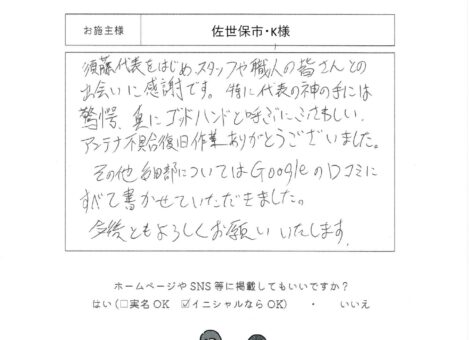 お施主様 佐世保市・K様
須藤代表をはじめ、スタッフや職人の皆さんとの
出会いに感謝です。特に代表の神の手には
驚愕、真にゴッドハンドと呼ぶにふさわしい。
アンテナ不具合復旧作業ありがとうございました。
その他細部についてはGoogleの口コミに
すべて書かせていただきました。
今後ともよろしくお願いいたします。
ホームページやSNS等に掲載してもいいですか？
はい（□実名OK ☑イニシャルならOK）　・　いいえ